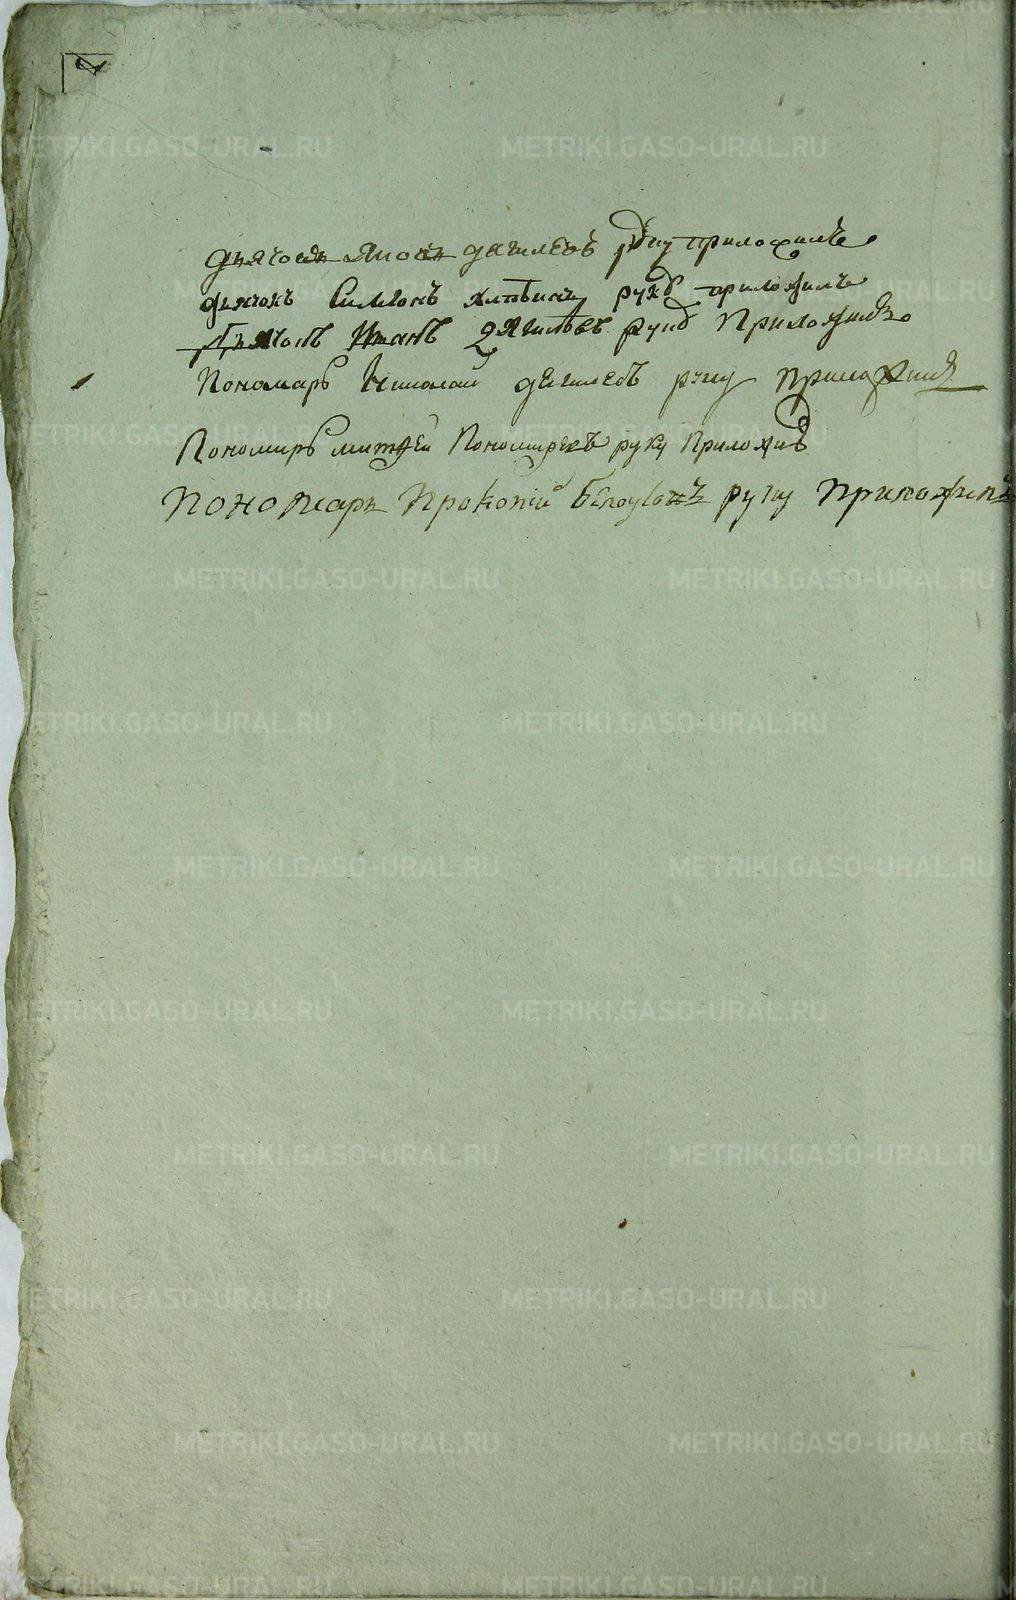 дьячокъ дягилевъ руку приложилъ
дьячокъ Симеонъ руку приложилъ
Дьячокъ Иванъ Дягилевъ руку Приложилъ
Пономарь Николай дягилевъ руку приложилъ
Пономарь матфей Пономаревъ руку Приложилъ
Пономарь Прокопий Белоусовъ руку Приложилъ
METRIKI.GASO-URAL.RU